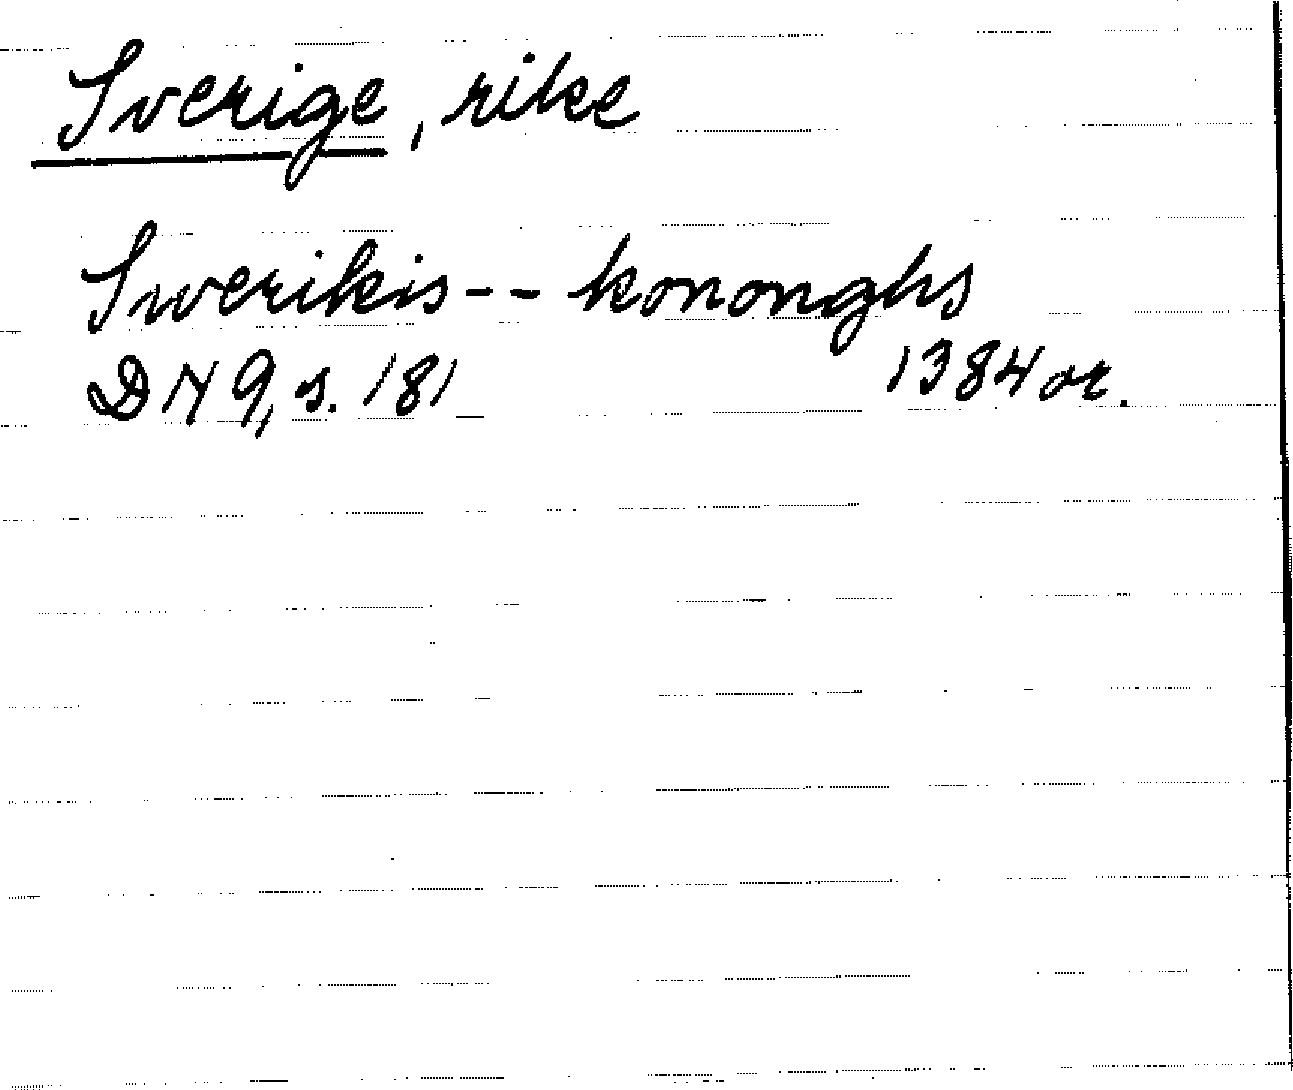 Sverige, rike
Swerikis -- kononghs
DN 9, s. 181 1384 or.